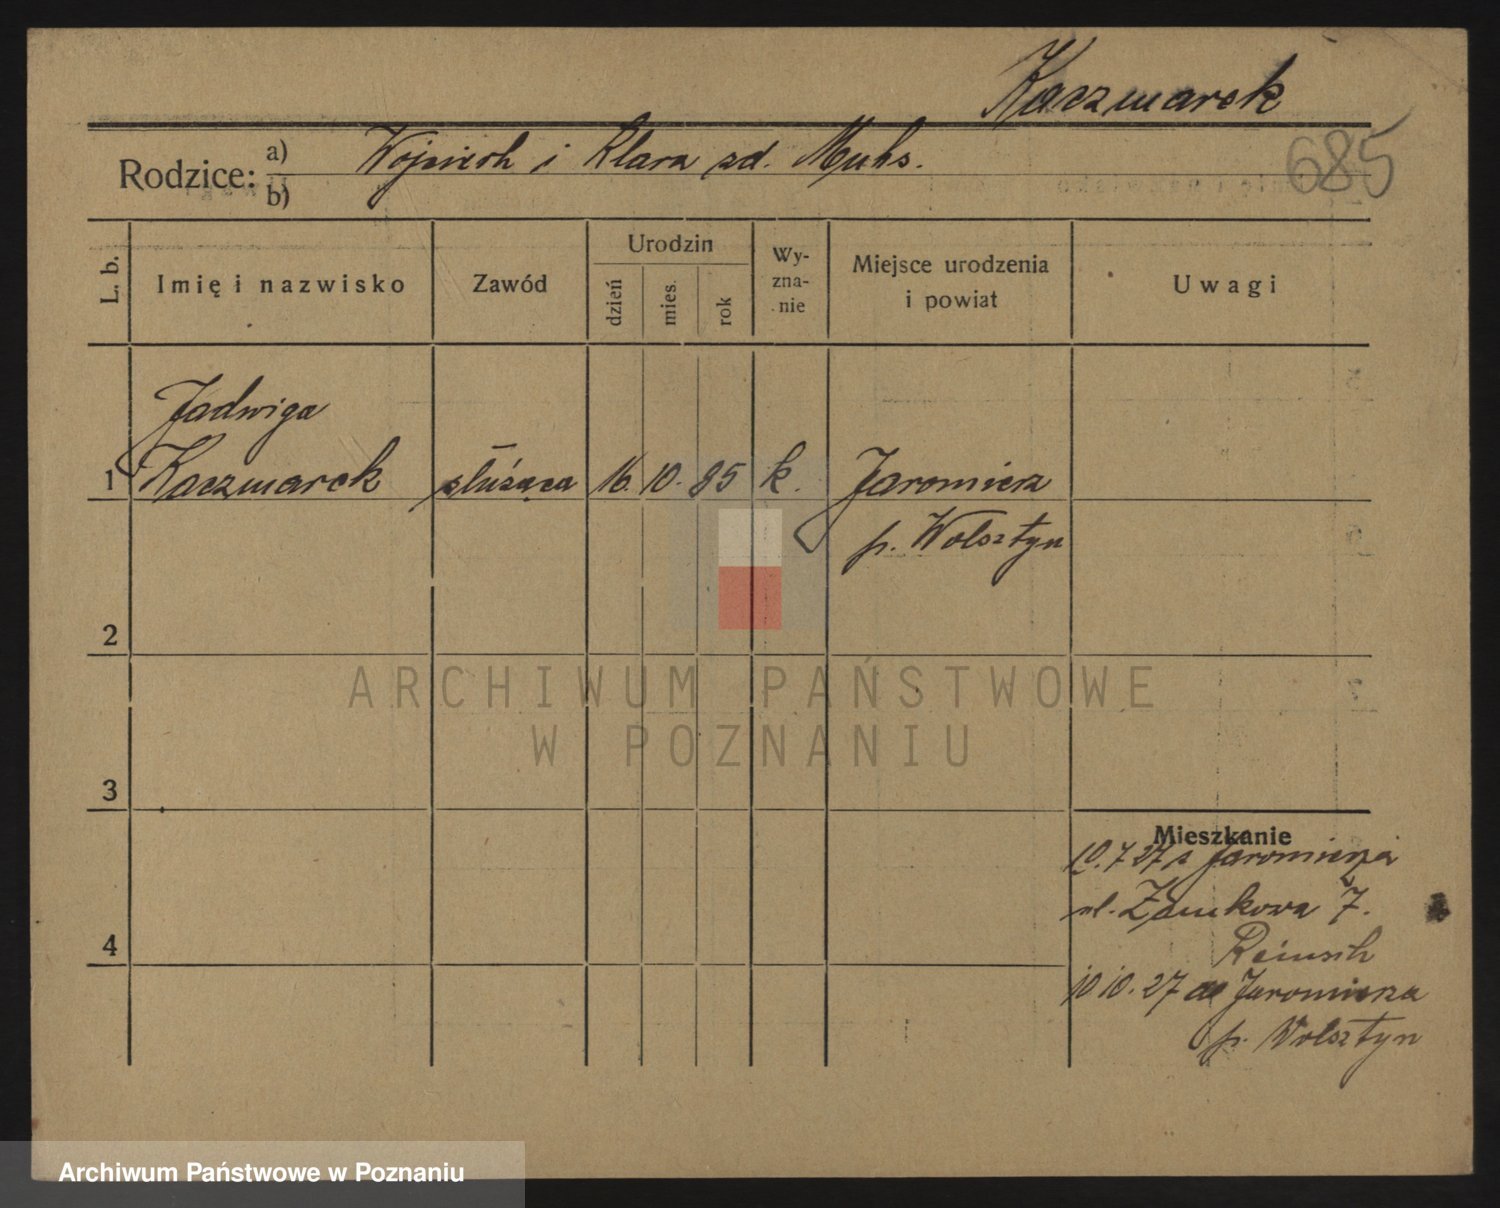 Kaczmarek
685
Rodzice: a) Wojciech i Klara zd. Muhs.
b)
L. b. Imię i nazwisko Zawód Urodzin dzień mies. rok Wy-zna-nie Miejsce urodzenia i powiat Uwagi
Jadwiga
1 Kaczmarek służąca 16. 10. 85 k. Jaromierz
p. Wolsztyn
2
ARCHIWUM PAŃSTWOWE
W POZNANIU
3
Mieszkanie
10.7 27 z Jaromierza
ul. Zamkowa 7.
4
10 10. 27 do Jaromierza
p. Wolsztyn
Archiwum Państwowe w Poznaniu